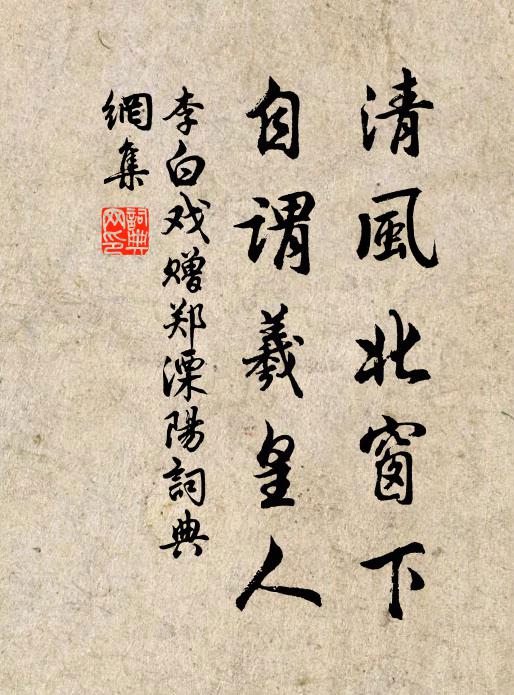 清風北窗下
自謂羲皇人
李白戏赠郑溧陽詞典
網集
詞典网印